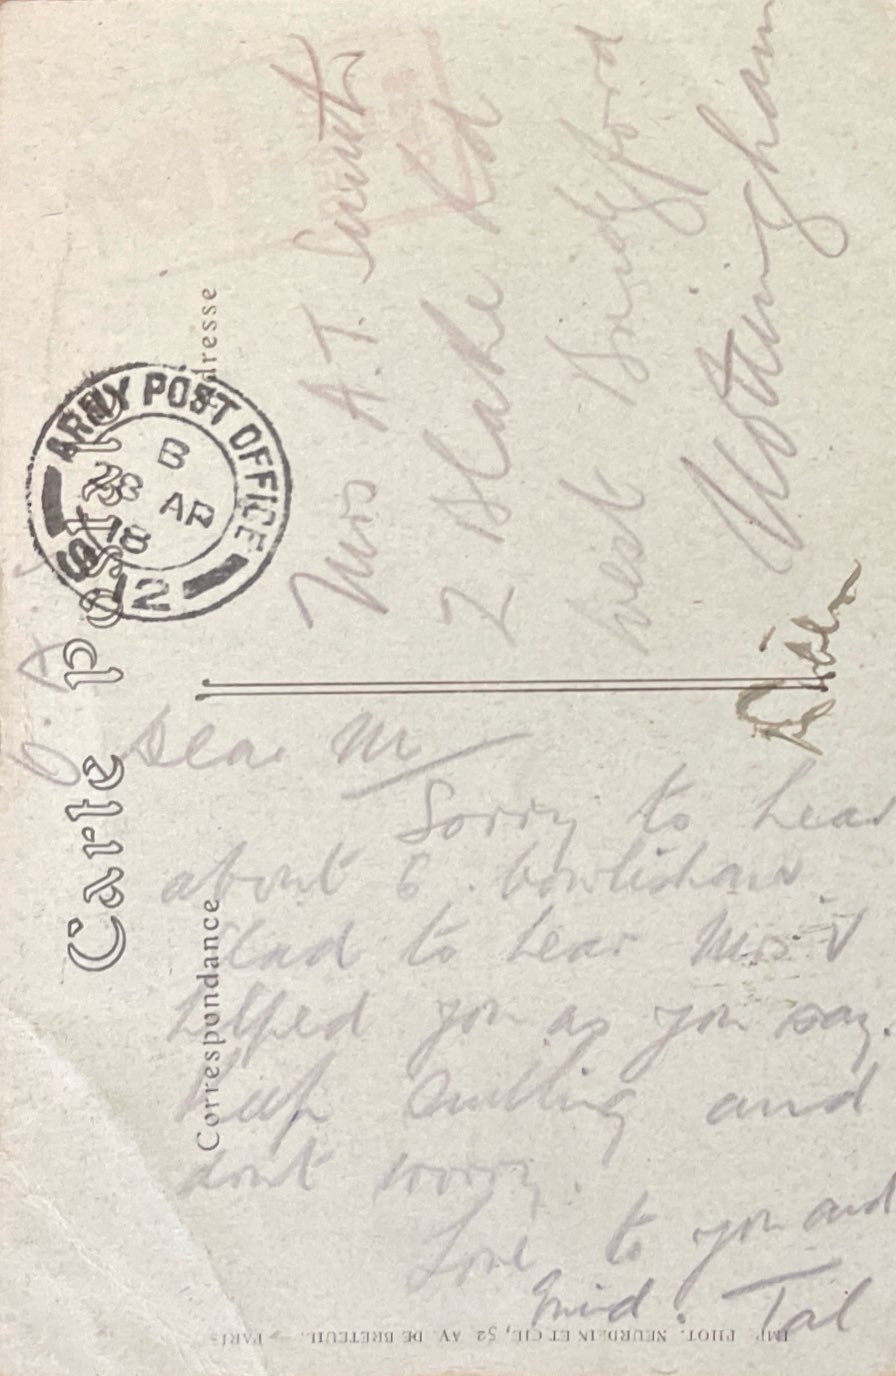 Carte postale
Correspondance
Adresse
ARMY POST OFFICE
B
28 AP
18
S 12
O. A. S.
Mrs A.T. Smith
2 Blake Rd
West Bridgford
Nottingham
Dear M
Sorry to hear
about
Glad to hear Mrs V
helped you as you say.
Keep smiling and
dont worry.
Love to you and
Tal
IMP. PHOT. NEURDEIN ET CIE, 52 AV. DE BRETEUIL. — PARIS